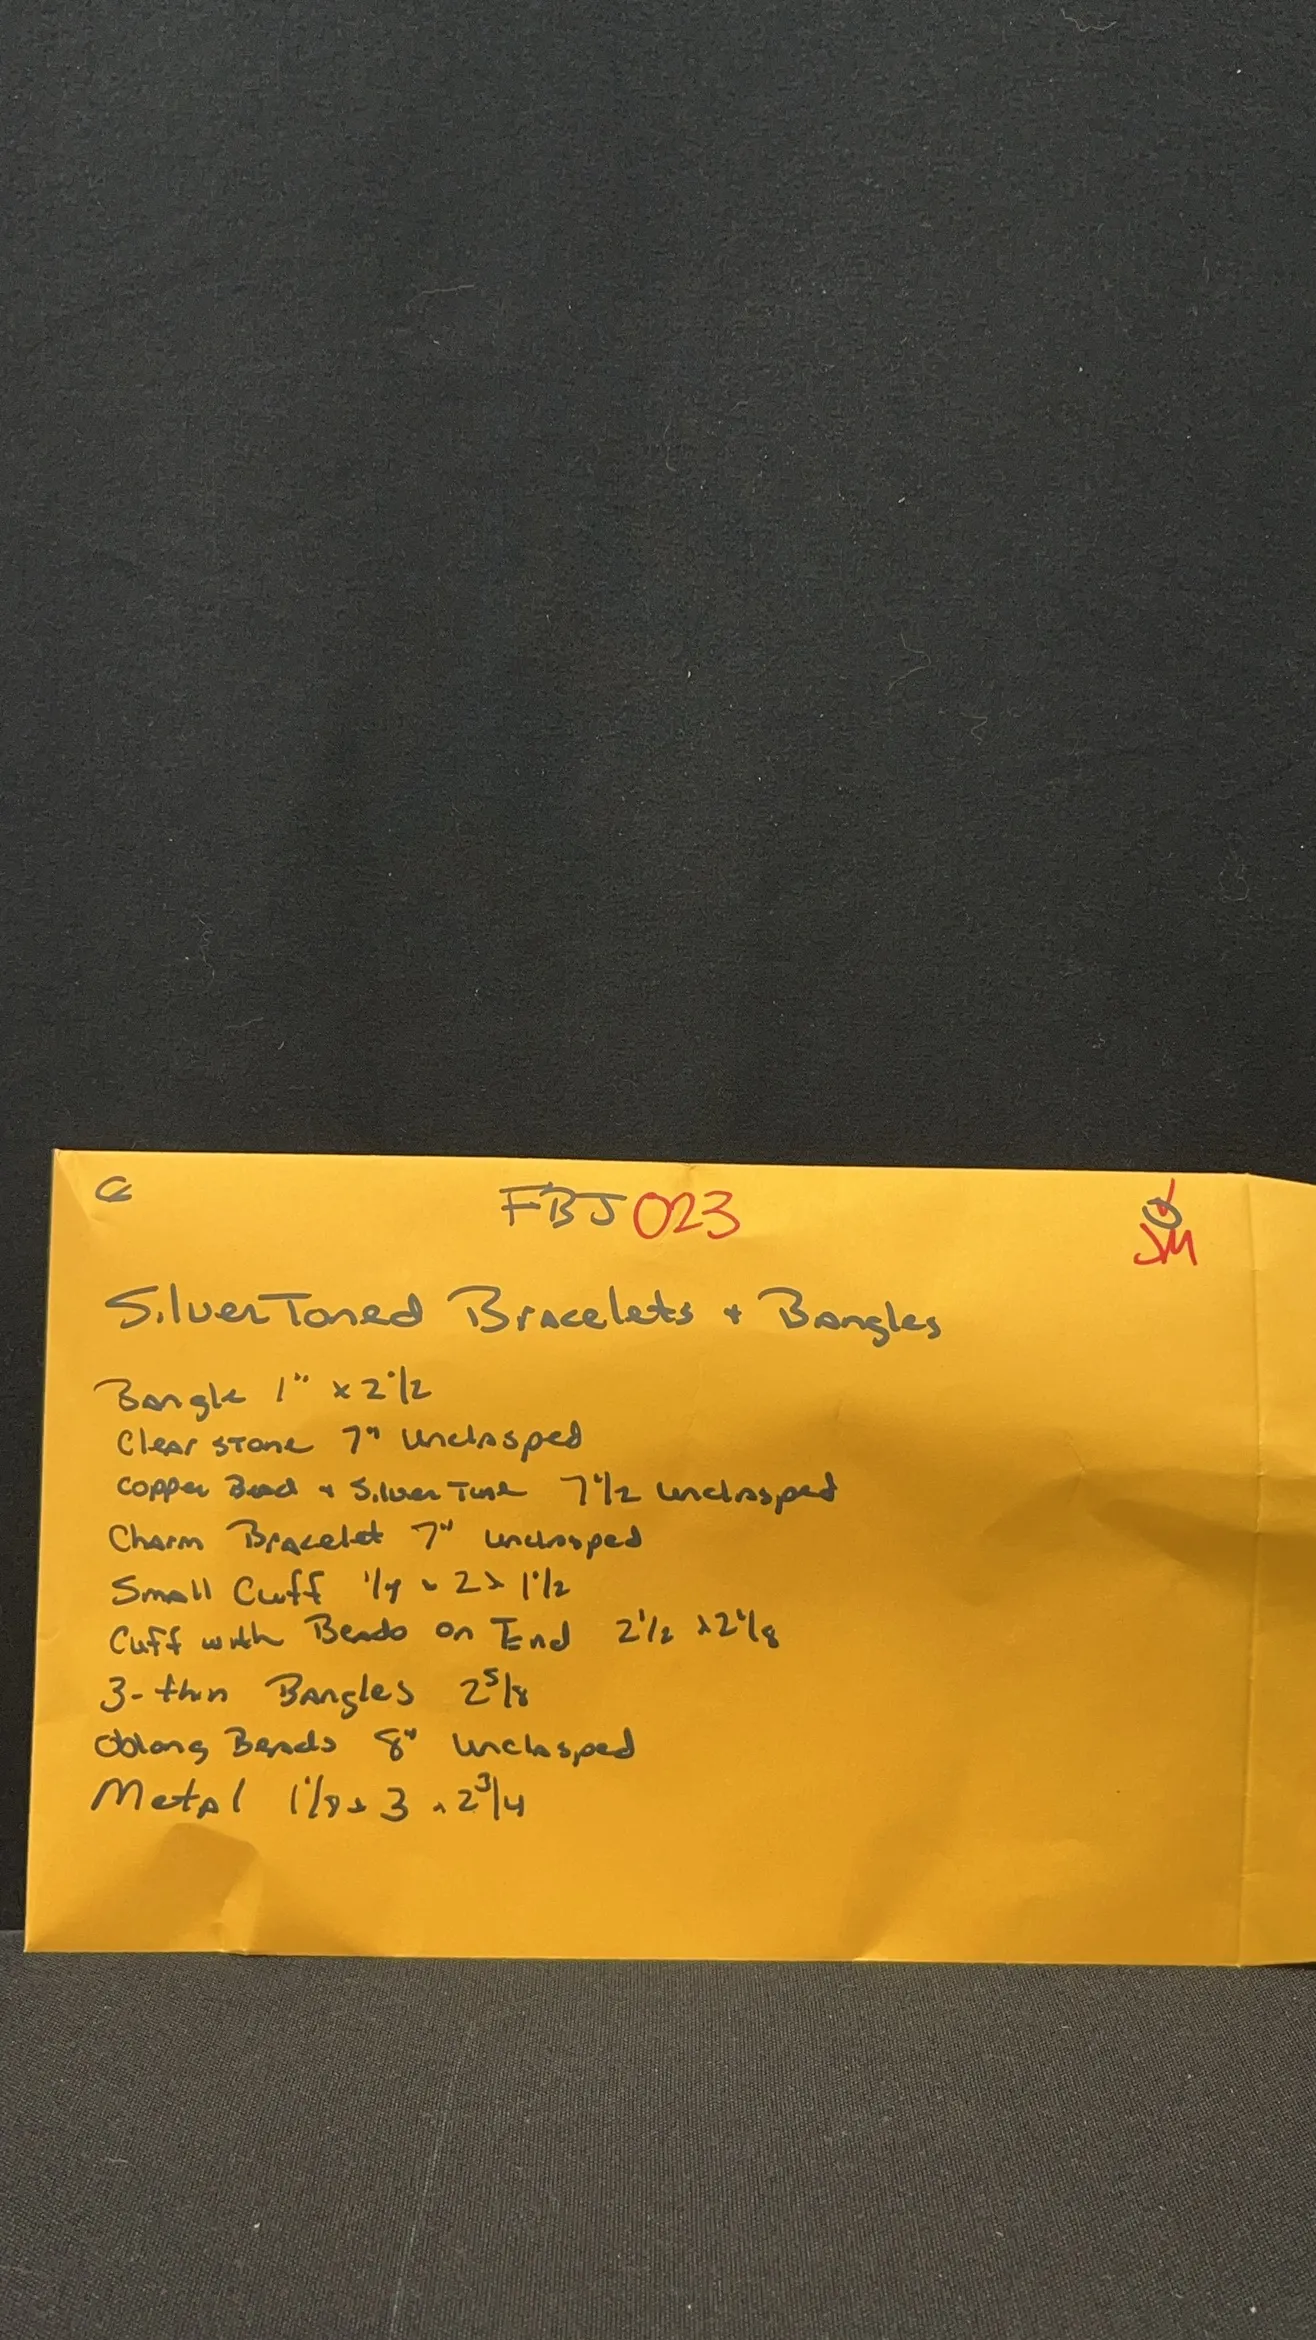 FBJ 023
JM
Silver Toned Bracelets + Bangles
Bangle 1" x 2 1/2
Clear stone 7" unclasped
Copper Bead + Silver Tone 7 1/2 unclasped
Charm Bracelet 7" unclasped
Small Cuff 1/4 x 2 x 1 1/2
Cuff with Beads on End 2 1/2 x 2 1/8
3-thin Bangles 2 5/8
Oblong Beads 8" unclasped
Metal 1 1/8 x 3 x 2 3/4